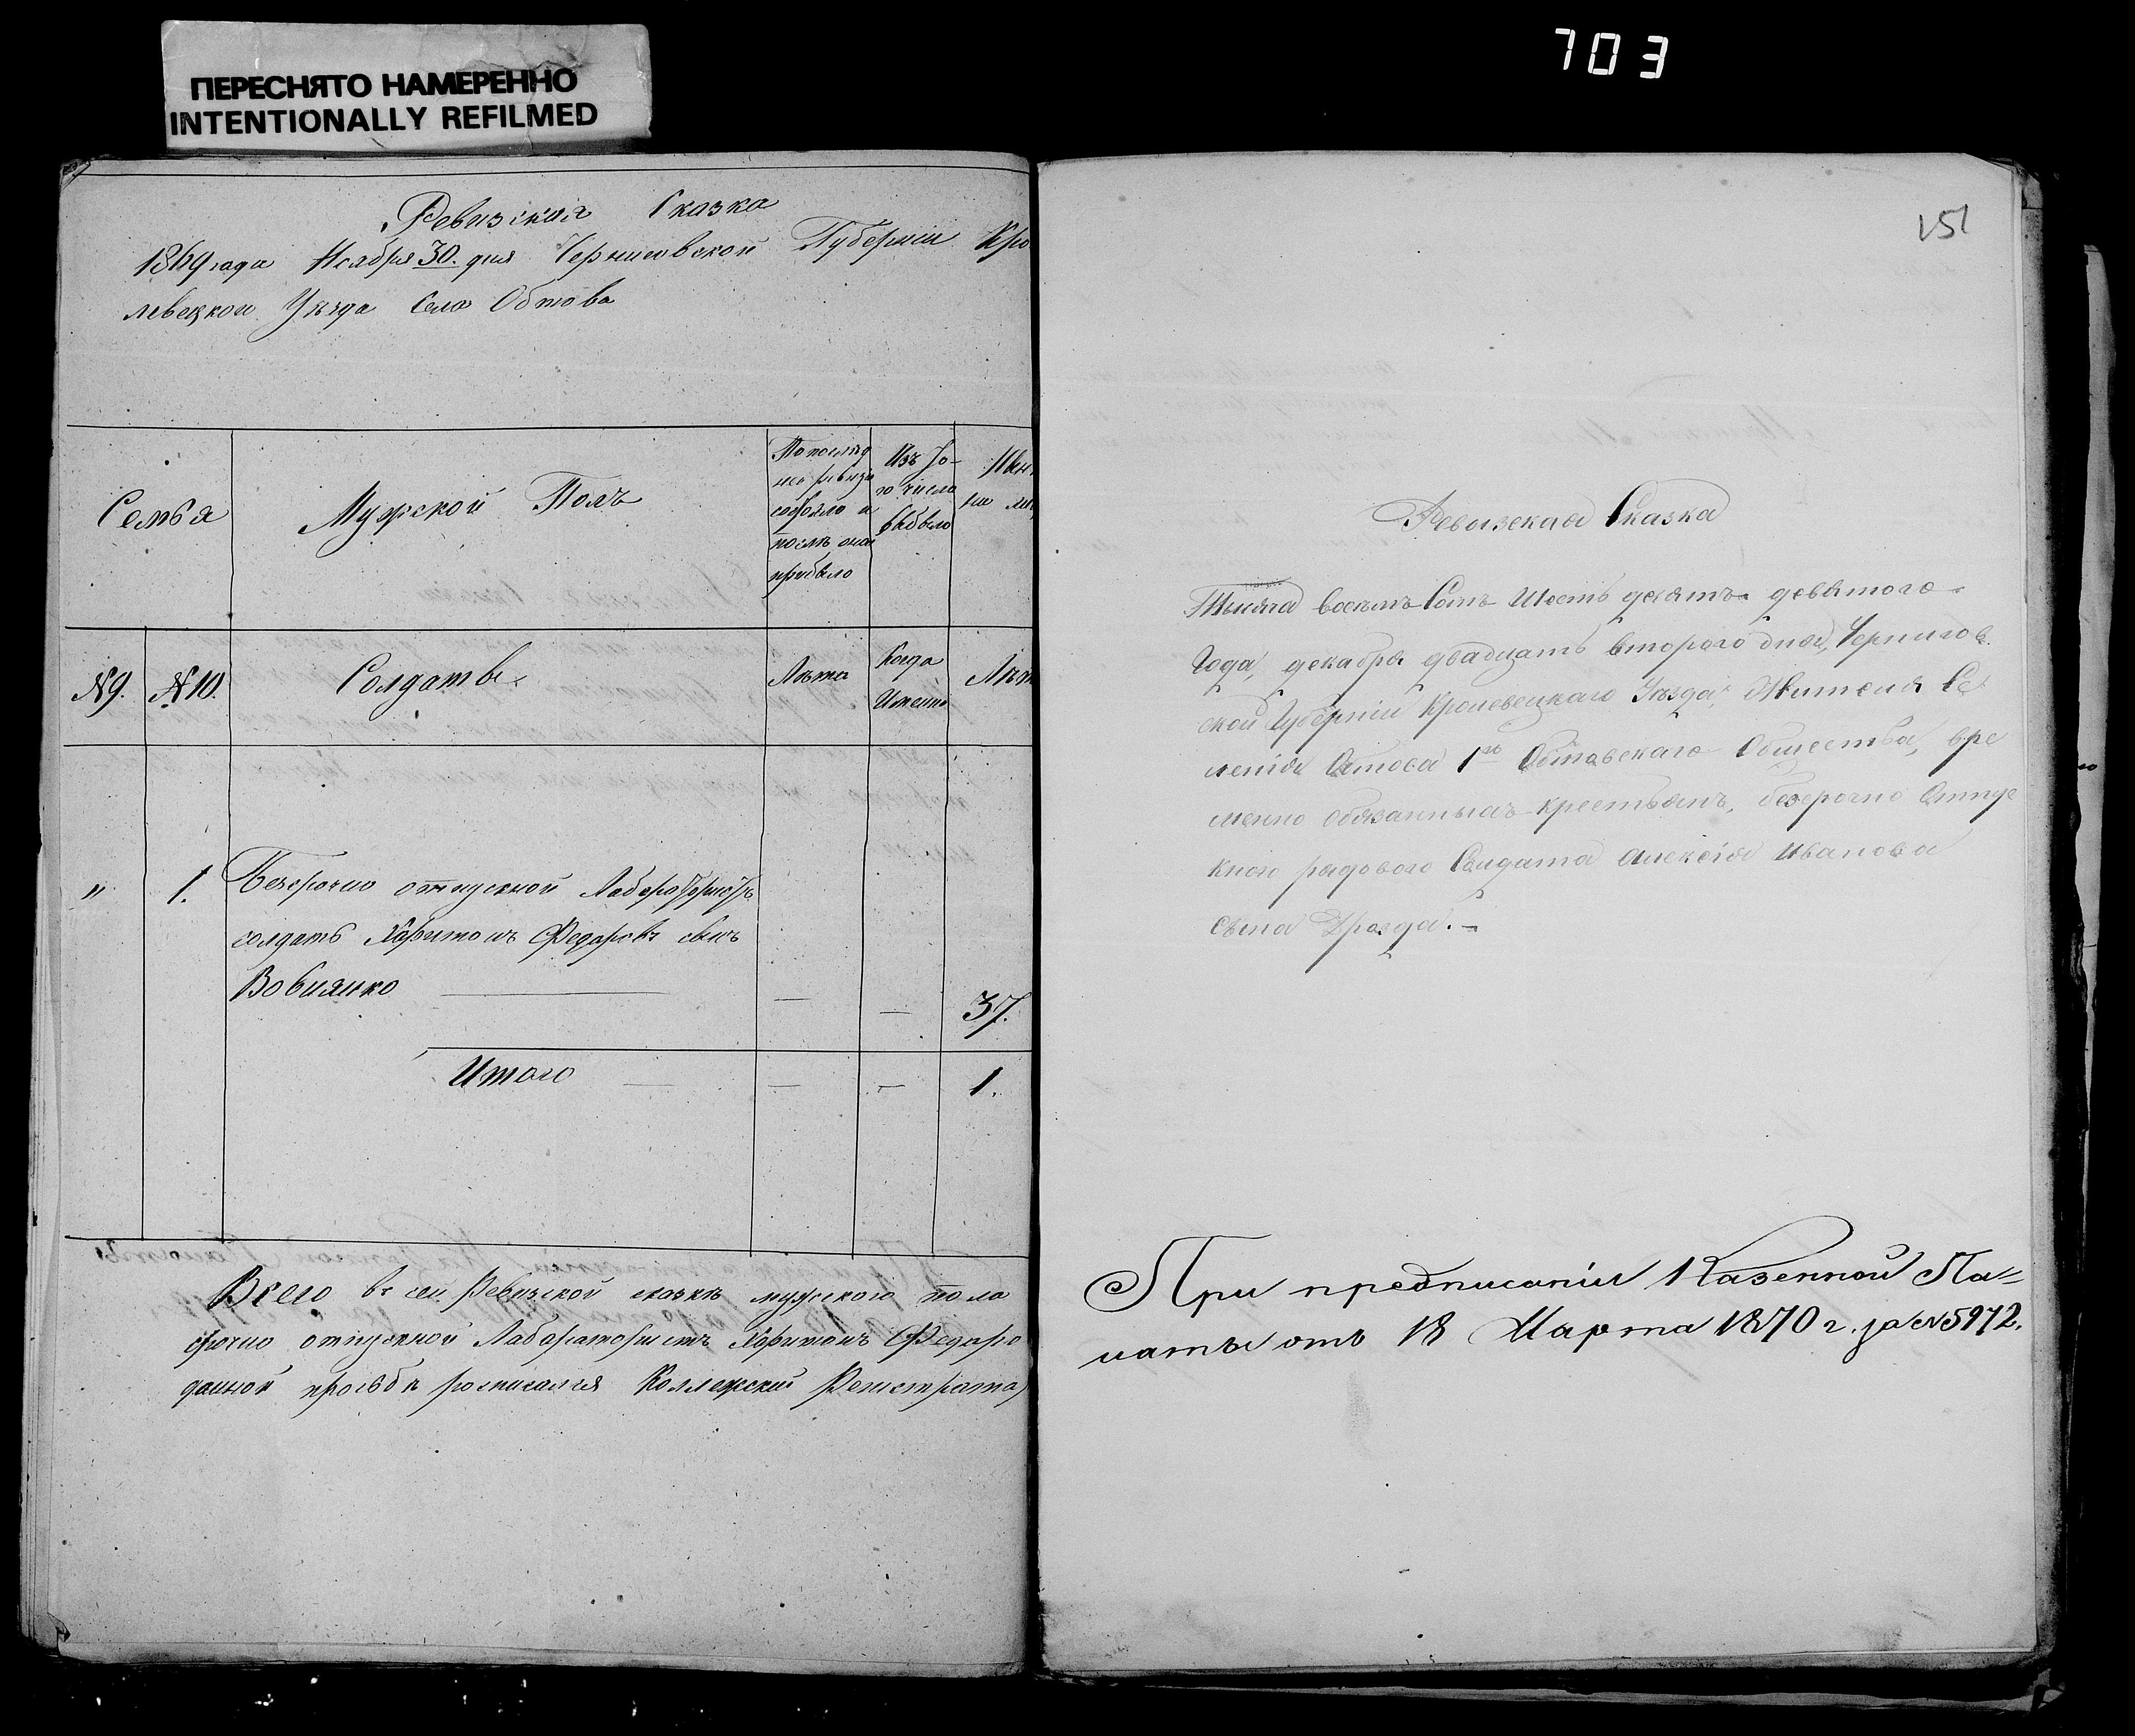 ПЕРЕСНЯТО НАМЕРЕННО
INTENTIONALLY REFILMED
703
Ревизская Сказка
1869 года Ноября 30. дня Черниговской Губернiи Кро
левецкого Уѣзда Села Обтова
Семья
Мужской Полъ
По послѣд
ней ревизiи
состояло и
послѣ оной
прибыло
Изъ то-
го числа
выбыло
Нын
на ли
№ 9.
№ 10.
Солдатъ
Лѣта
Когда
Именно
Лѣт
"
1.
Безсрочно отпускной Лаборатористъ
солдатъ Харитонъ Федоровъ сынъ
Вовнянко
— — 37.
Итого — — — 1.
Всего въ сей Ревизской сказкѣ мужского пола
срочно отпускной Лаборатористъ Харитонъ Федоро
данной просьбѣ росписался Коллежский Регистрато
151
Ревизская Сказка
Тысяча восемъ Сотъ Шесть десятъ девятого
Года, декабря двадцать второго дня, Чернигов
ской Губернiи Кролевецкаго Уѣзда, Жителя Се
ленiя Обтова 1го Обтовскаго Общества, вре
менно Обязанныхъ крестьянъ, безсрочно Отпус
кного рядового Солдата Алексiя Иванова
сына Дрозда. —
При предписанiи Казенной Па=
латы отъ 18 Марта 1870 г. за № 5972.